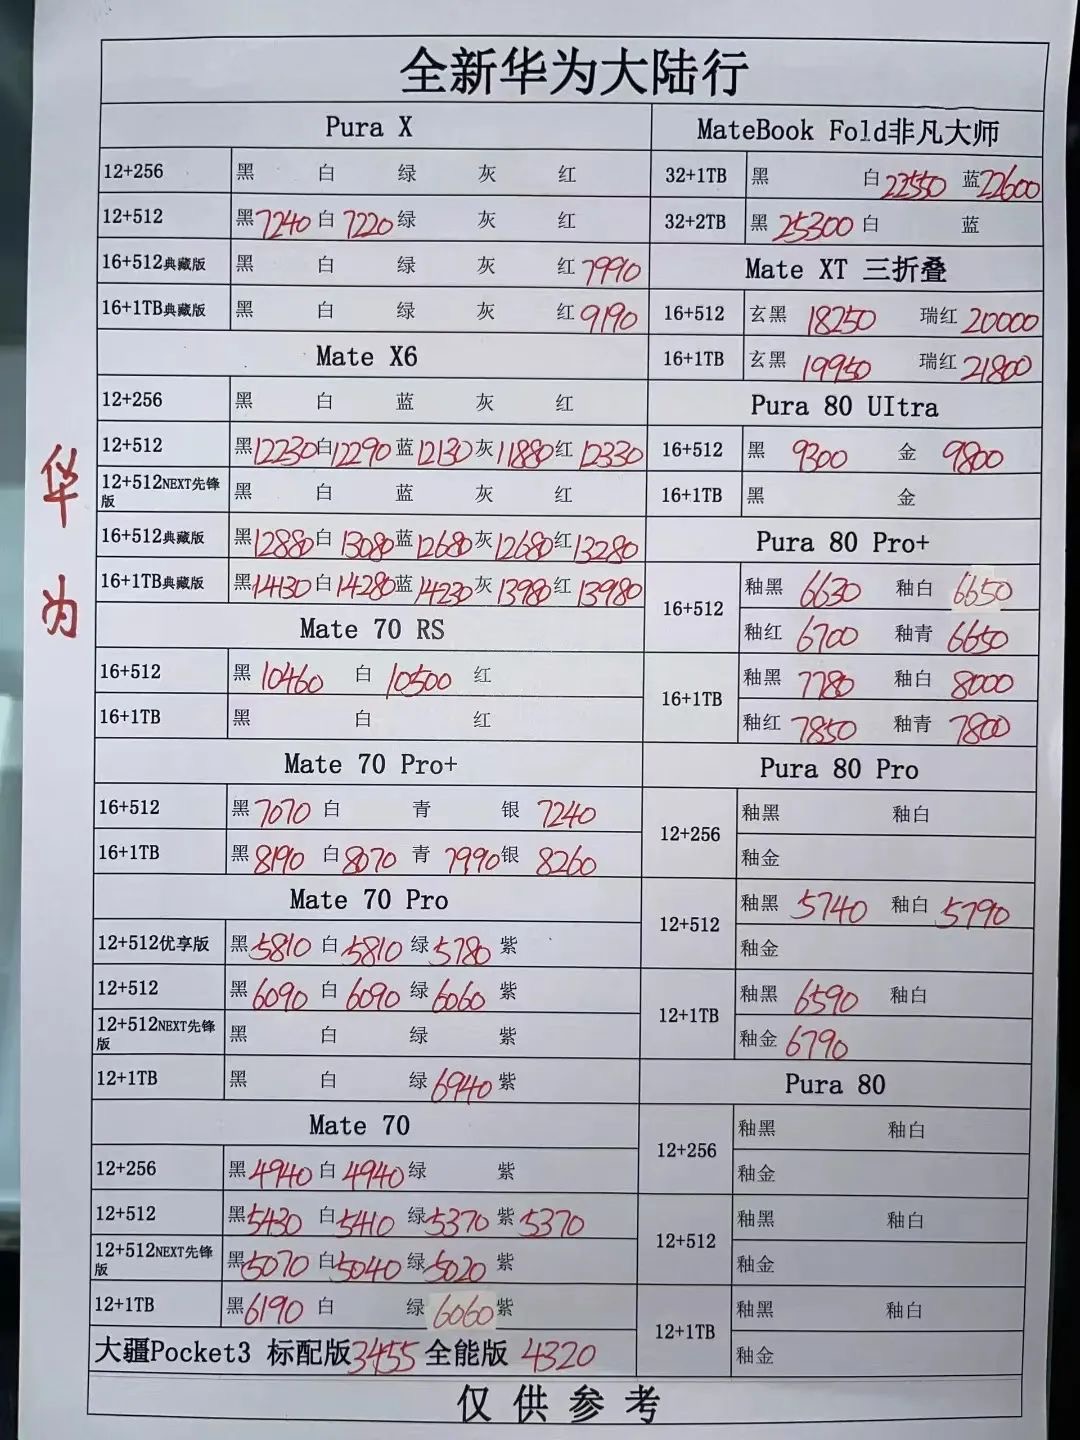 全新华为大陆行
华为
Pura X
12+256 黑 白 绿 灰 红
12+512 黑 7240 白 7220 绿 灰 红
16+512典藏版 黑 白 绿 灰 红 7990
16+1TB典藏版 黑 白 绿 灰 红 9190
Mate X6
12+256 黑 白 蓝 灰 红
12+512 黑 12230 白 12290 蓝 12130 灰 11880 红 12330
12+512NEXT先锋版 黑 白 蓝 灰 红
16+512典藏版 黑 12880 白 13080 蓝 12680 灰 12680 红 13280
16+1TB典藏版 黑 14130 白 14280 蓝 14230 灰 13980 红 13980
Mate 70 RS
16+512 黑 10460 白 10500 红
16+1TB 黑 白 红
Mate 70 Pro+
16+512 黑 7070 白 青 银 7240
16+1TB 黑 8190 白 8070 青 7990 银 8260
Mate 70 Pro
12+512优享版 黑 5810 白 5810 绿 5780 紫
12+512 黑 6090 白 6090 绿 6060 紫
12+512NEXT先锋版 黑 白 绿 紫
12+1TB 黑 白 绿 6940 紫
Mate 70
12+256 黑 4940 白 4940 绿 紫
12+512 黑 5430 白 5410 绿 5370 紫 5370
12+512NEXT先锋版 黑 5070 白 5040 绿 5020 紫
12+1TB 黑 6190 白 绿 6060 紫
大疆Pocket3 标配版 3455 全能版 4320
MateBook Fold非凡大师
32+1TB 黑 白 22550 蓝 22600
32+2TB 黑 25300 白 蓝
Mate XT 三折叠
16+512 玄黑 18250 瑞红 20000
16+1TB 玄黑 19950 瑞红 21800
Pura 80 UItra
16+512 黑 9300 金 9800
16+1TB 黑 金
Pura 80 Pro+
16+512 釉黑 6630 釉白 6650
釉红 6700 釉青 6650
16+1TB 釉黑 7780 釉白 8000
釉红 7850 釉青 7800
Pura 80 Pro
12+256 釉黑 釉白
釉金
12+512 釉黑 5740 釉白 5790
釉金
12+1TB 釉黑 6590 釉白
釉金 6790
Pura 80
12+256 釉黑 釉白
釉金
12+512 釉黑 釉白
釉金
12+1TB 釉黑 釉白
釉金
仅供参考